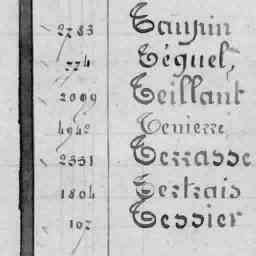 2783 Taupin
774 Téquel,
2009 Teillant
4942 Tenierre
2551 Terrasse
1804 Tertrais
107 Tessier